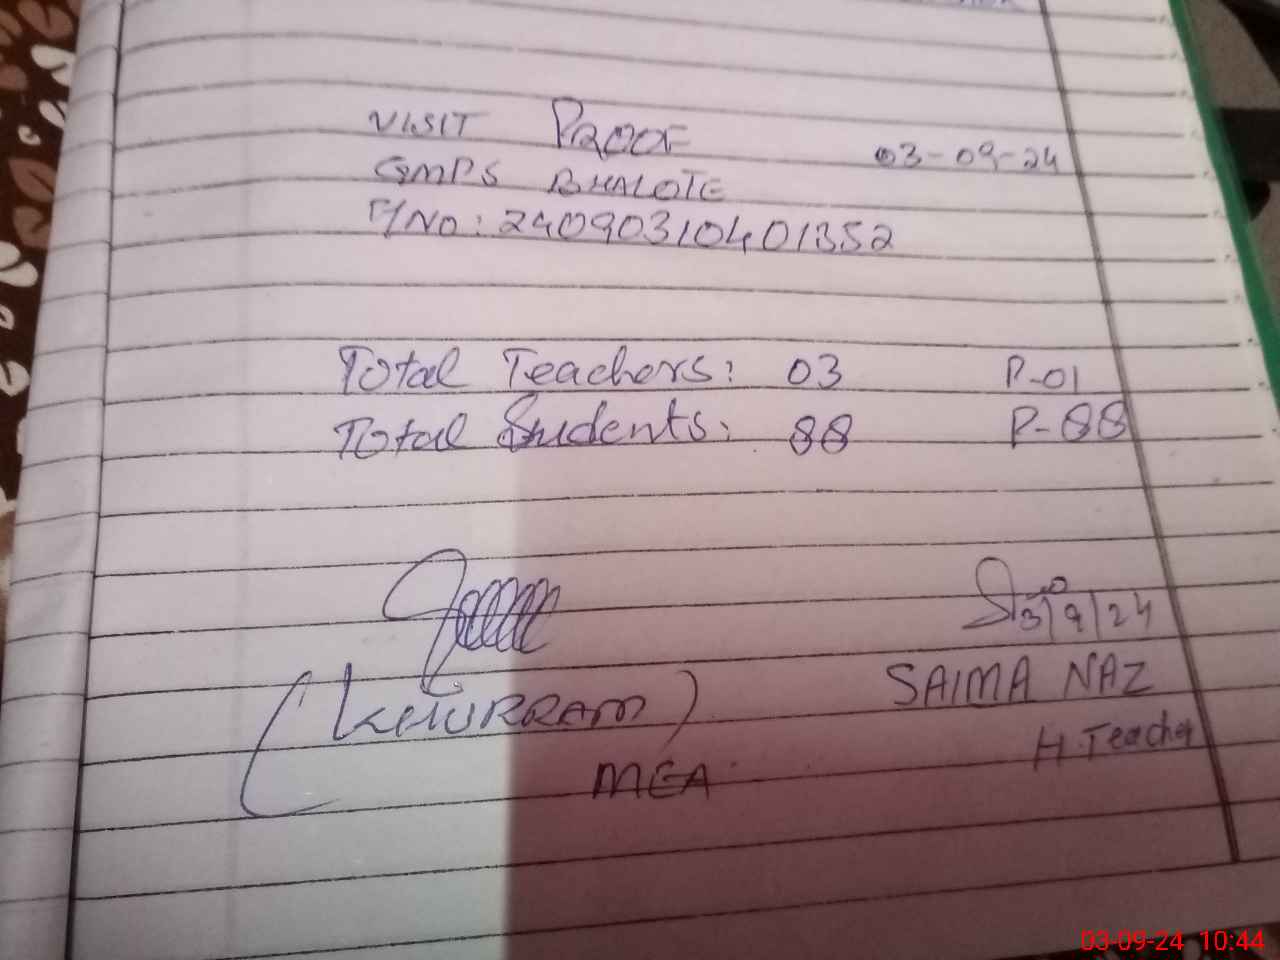 VISIT PROOF 03-09-24
GMPS BHALOTE
F/No: 24090310401352
Total Teachers: 03 P-01
Total Students: 88 P-88
3/9/24
(KHURRAM) SAIMA NAZ
MEA H.Teacher
03-09-24 10:44